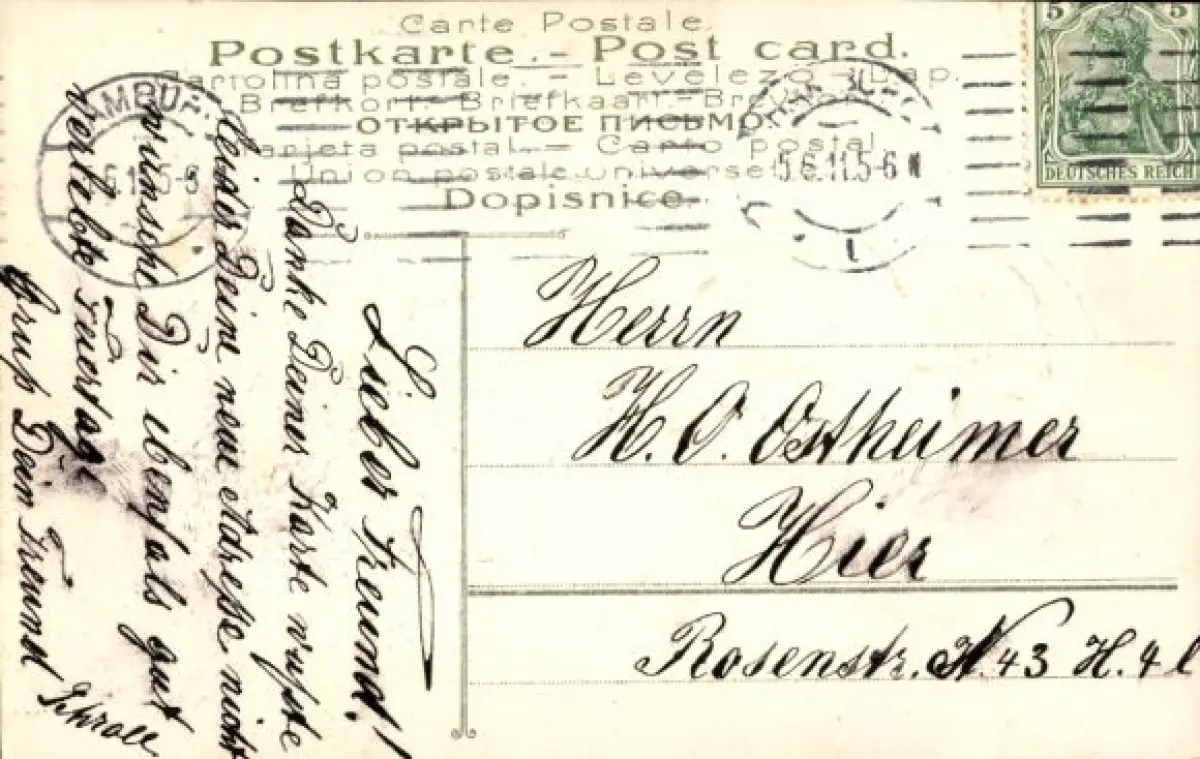 Carte Postale.
Postkarte. – Post card.
Cartolina postale. – Levelező-Lap.
Brefkort.– Briefkaart.– Brevkort.
ОТКРЫТОЕ ПИСЬМО.
Tarjeta postal.– Carto postal
Union postale universelle
Dopisnice.
5 5
DEUTSCHES REICH
5.6.11.5-6 N
1
Lieber Freund!
Danke Deiner Karte wußte
leider Deine neue Adresse nicht
wünsche Dir ebenfals gut
verlebte Feiertage
Gruß Dein Freund
Schroll
Herrn
H. O. Ostheimer
Hier
Rosenstr. N. 43 H. 4 l